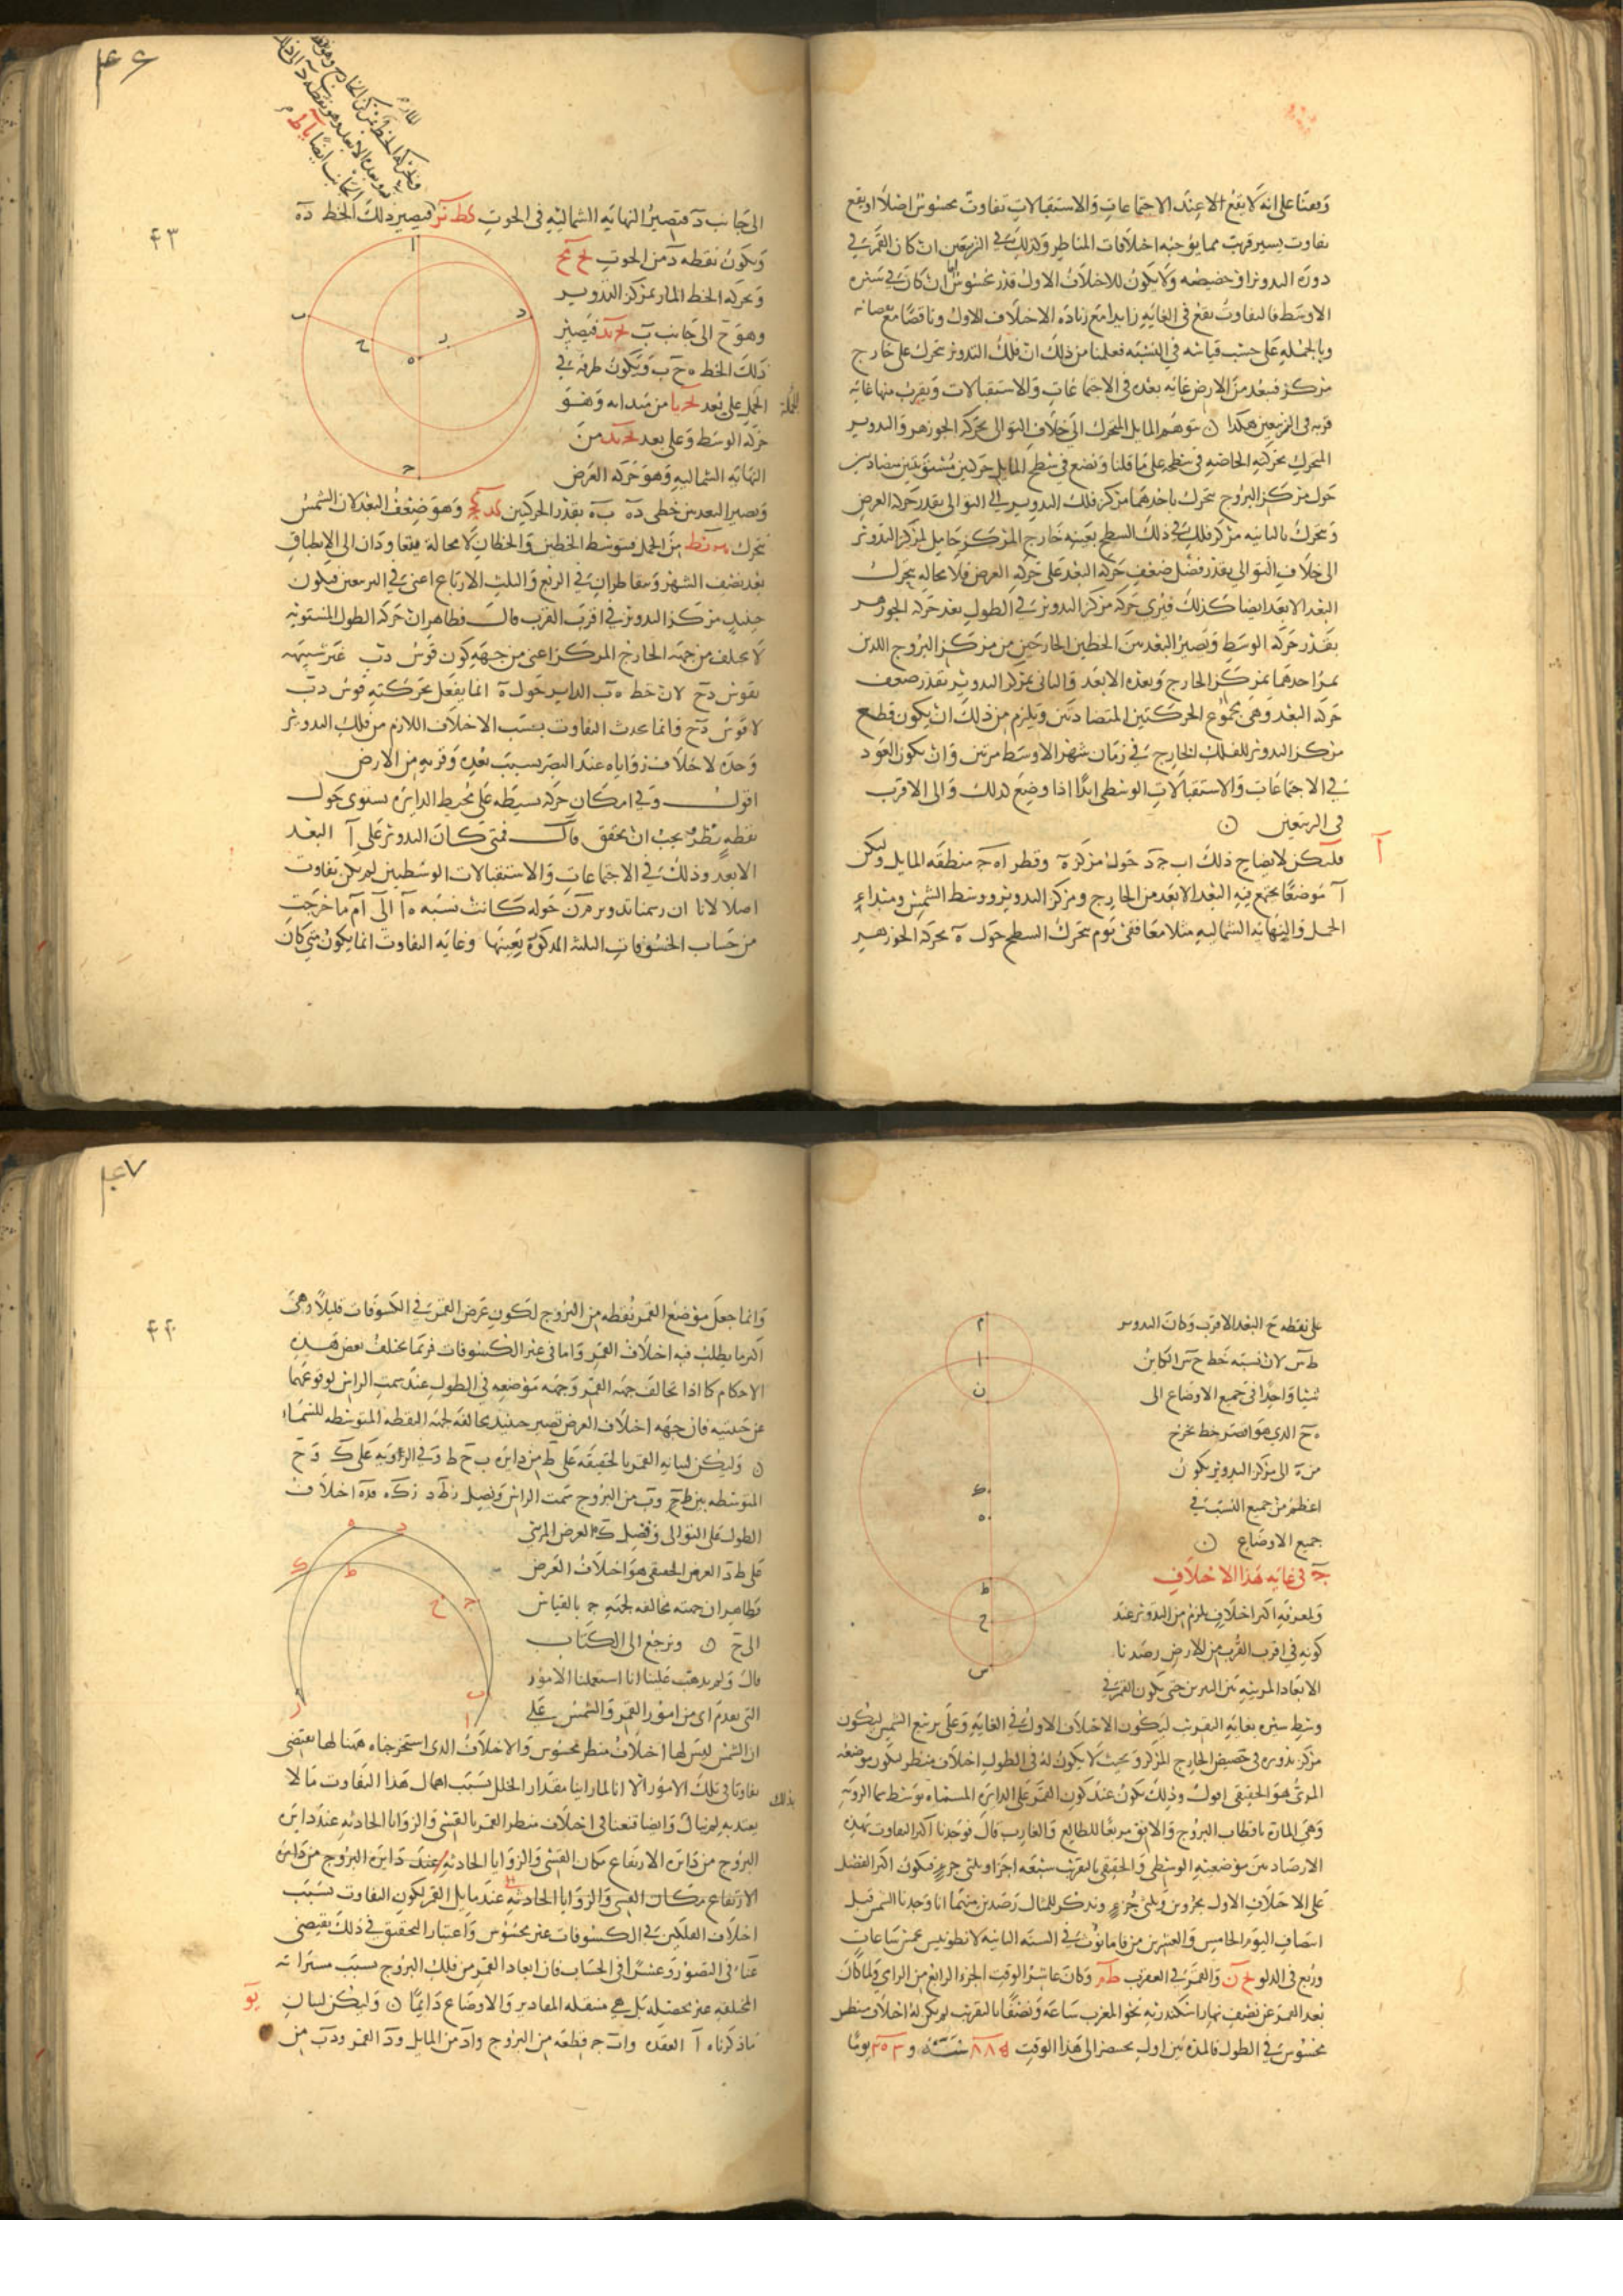 وبعثنا على انه لا يقع الا عند الاجتماعات والاستقبالات تفاوت محسوس اصلا او يقع
تفاوت يسير قريب مما يوجبه اختلافات المناظر وكذلك في التربيعين ان كان القمر في
ذروة التدوير او حضيضه ولا يكون للاختلاف الاول قدر محسوس ان كان في مسيره
الاوسط فالتفاوت يقع في الغاية زايدا مع زيادة الاختلاف الاول وناقصا مع نقصانه
وبالجملة على حسب قياسه في النسبة فعلمنا من ذلك ان فلك التدوير يتحرك على خارج
مركز فيبعد من الارض غاية بعده في الاجتماعات والاستقبالات ويقرب منها غاية
قربه في التربيعين هكذا ن نتوهم المايل المتحرك الى خلاف التوالى بحركة الجوزهر والتدوير
المتحرك بحركته الخاصة في سطحه على ما قلنا ونضع في سطح المايل حركتين مستويتين متضادتين
حول مركز البروج يتحرك باحدهما مركز فلك التدوير الى التوالى بقدر حركة العرض
ويتحرك بالثانية مركز فلك في ذلك السطح بعينه خارج المركز حامل لمركز التدوير
الى خلاف التوالى بقدر فضل ضعف حركة البعد على حركة العرض فلا محالة يتحرك
البعد الابعد ايضا كذلك فيرى حركة مركز التدوير في الطول بعد حركة الجوزهر
بقدر حركة الوسط ويصير البعد بين الخطين الخارجين من مركز البروج اللذين
يمر احدهما بمركز الخارج وبعده الابعد والثانى بمركز التدوير بقدر ضعف
حركة البعد وهي مجموع الحركتين المتضادتين ويلزم من ذلك ان يكون قطع
مركز التدوير للفلك الخارج في زمان شهر الاوسط مرتين وان يكون العود
في الاجتماعات والاستقبالات الوسطى ابدا اذا وضع كذلك والى الاقرب
فى التربيعين ن
آ فليكن لايضاح ذلك اب جد حول مركز ه وقطر اه ج منطقة المايل وليكن
آ موضعا يجتمع فيه البعد الابعد من الخارج ومركز التدوير ووسط الشمس ومبداء
الحمل والنهاية الشمالية مثلا معا ففى يوم يتحرك السطح حول ه بحركة الجوزهر
۴۶
۴۳
الى جانب د فتصير النهاية الشمالية فى الحوت كط نز فيصير ذلك الخط ده
ويكون نقطة د من الحوت
وبحركة الخط المار بمركز التدوير
وهو ح الى جانب ب فيصير
ذلك الخط ه ح ب ويكون طرفه في
الحمل على بعد من مبدائه وهو
حركة الوسط وعلى بعد من
النهاية الشمالية وهو حركة العرض
ويصير البعد بين خطى ده ب ه بقدر الحركتين كد كج وهو ضعف البعد لان الشمس
يتحرك نه نط من الحمل فتوسط الخطين والخطان لا محالة يتعاودان الى الانطباق
بعد نصف الشهر ويتقاطران في الربع والثلث الارباع اعنى في التربيعين فيكون
حينئذ مركز التدوير في اقرب القرب قال فظاهر ان حركة الطول المستوية
لا يختلف من جهة الخارج المركز اعنى من جهة كون قوس دب غير شبيهة
بقوس دح لان خط ه ب الداير حول ه انما يفعل بحركته قوس دب
لا قوس دح وانما يحدث التفاوت بسبب الاختلاف اللازم من فلك التدوير
وحده لاختلاف زواياه عند البصر بسبب بعده وقربه من الارض
اقول وفي امكان حركة بسيطة على محيط الدايرة يستوى حول
نقطة نظر يجب ان يحقق قال فمتى كان التدوير على آ البعد
الابعد وذلك في الاجتماعات والاستقبالات الوسطيين لم يكن تفاوت
اصلا لانا ان رسمنا تدوير م ن حوله كانت نسبة ه آ الى آم ما خرجت
من حساب الخسوفات الثلثة المذكورة بعينها وغاية التفاوت انما يكون متى كان
على نقطة ح البعد الاقرب وكان التدوير
ط س لان نسبة خط ح س الكاين
شيئا واحدا فى جميع الاوضاع الى
ه ح الذي هو اقصر خط يخرج
من ه الى مركز التدوير يكون
اعظم من جميع النسب في
جميع الاوضاع ن
ج فى غاية هذا الاختلاف
ولمعرفة اكثر اختلاف يلزم من التدوير عند
كونه في اقرب القرب من الارض رصدنا
الابعاد المرئية بين النيرين حتى يكون القمر في
وسط سيره بغاية التقريب ليكون الاختلاف الاول في الغاية وعلى تربيع الشمس ليكون
مركز تدويره فى حضيض الخارج المركز وبحيث لا يكون له فى الطول اختلاف منظر ليكون موضعه
المرئى هو الحقيقى اقول وذلك يكون عند كون القمر على الدايرة المسماة بوسط سما الروية
وهي المارة باقطاب البروج والافق مربعا للطالع والغارب قال فوجدنا اكثر التفاوت بهذه
الارصاد بين موضعيه الوسطى والحقيقى بالتقريب سبعة اجزا وثلثى جزو فيكون اكثر الفضل
على الاختلاف الاول بجزوين وثلثى جزو ونذكر للمثال رصدين منهما انا وجدنا الشمس قبل
انتصاف اليوم الخامس والعشرين من فامانوث في السنة الثانية لانطونينس بخمس ساعات
وربع فى الدلو والقمر في العقرب وكان عاشر الوقت الجزء الرابع من الرامي ولما كان
بعد القمر عن نصف نهار اسكندرية نحو المغرب ساعة ونصفا بالتقريب لم يكن له اختلاف منظر
محسوس في الطول فالمدة من اول بختنصر الى هذا الوقت ٨٨٥ سنة و ٢٠٣ يوما
۴۷
۴۴
وانما جعل موضع القمر نقطة من البروج لكون عرض القمر في الكسوفات قليلا وهى
اكثر ما يطلب فيه اختلاف القمر واما فى غير الكسوفات فربما يختلف بعض هذه
الاحكام كما اذا تخالف جهة القمر وجهة موضعه في الطول عند سمت الراس لوقوعهما
عن جنبتيه فان جهة اختلاف العرض تصير حينئذ مخالفة لجهة النقطة المتوسطة للسماء
ن وليكن لبيانه القمر بالحقيقة على ط من دايرة ب ح ط وفي الروية على ك و ح
المتوسطة بين ط ج و ب من البروج سمت الراس ونصل زط د زك ه فده اختلاف
الطول على التوالى وفضل ك ه العرض المرئى
على ط د العرض الحقيقى هو اختلاف العرض
فظاهر ان جهته مخالفة لجهة ج بالقياس
الى ح ن ونرجع الى الكتاب
قال ولم يذهب علينا انا استعملنا الامور
التى تقدم اى من امور القمر والشمس على
ان الشمس ليس لها اختلاف منظر محسوس والاختلاف الذى استخرجناه ههنا لها يقتضى
تفاوتا فى تلك الامور الا انا لما راينا مقدار الخلل بسبب اهمال هذا التفاوت مما لا
يعتد به لم نبال بذلك وايضا قنعنا فى اختلاف منظر القمر بالقسى والزوايا الحادثة عند دايرة
البروج من دايرة الارتفاع مكان القسى والزوايا الحادثة عند دايرة البروج من دايرة
الارتفاع مكان القسى والزوايا الحادثة عند مايل القمر لكون التفاوت بسبب
اختلاف الفلكين في الكسوفات غير محسوس واعتبار التحقيق في ذلك يقتضى
عناء فى التصور وعسرا فى الحساب فان ابعاد القمر من فلك البروج بسبب مسيراته
المختلفة غير متحصلة بل هي منتقلة المقادير والاوضاع دايما ن وليكن لبيان
يو
ما ذكرناه آ العقدة وا ب ج قطعة من البروج واد من المايل ود القمر ودب من